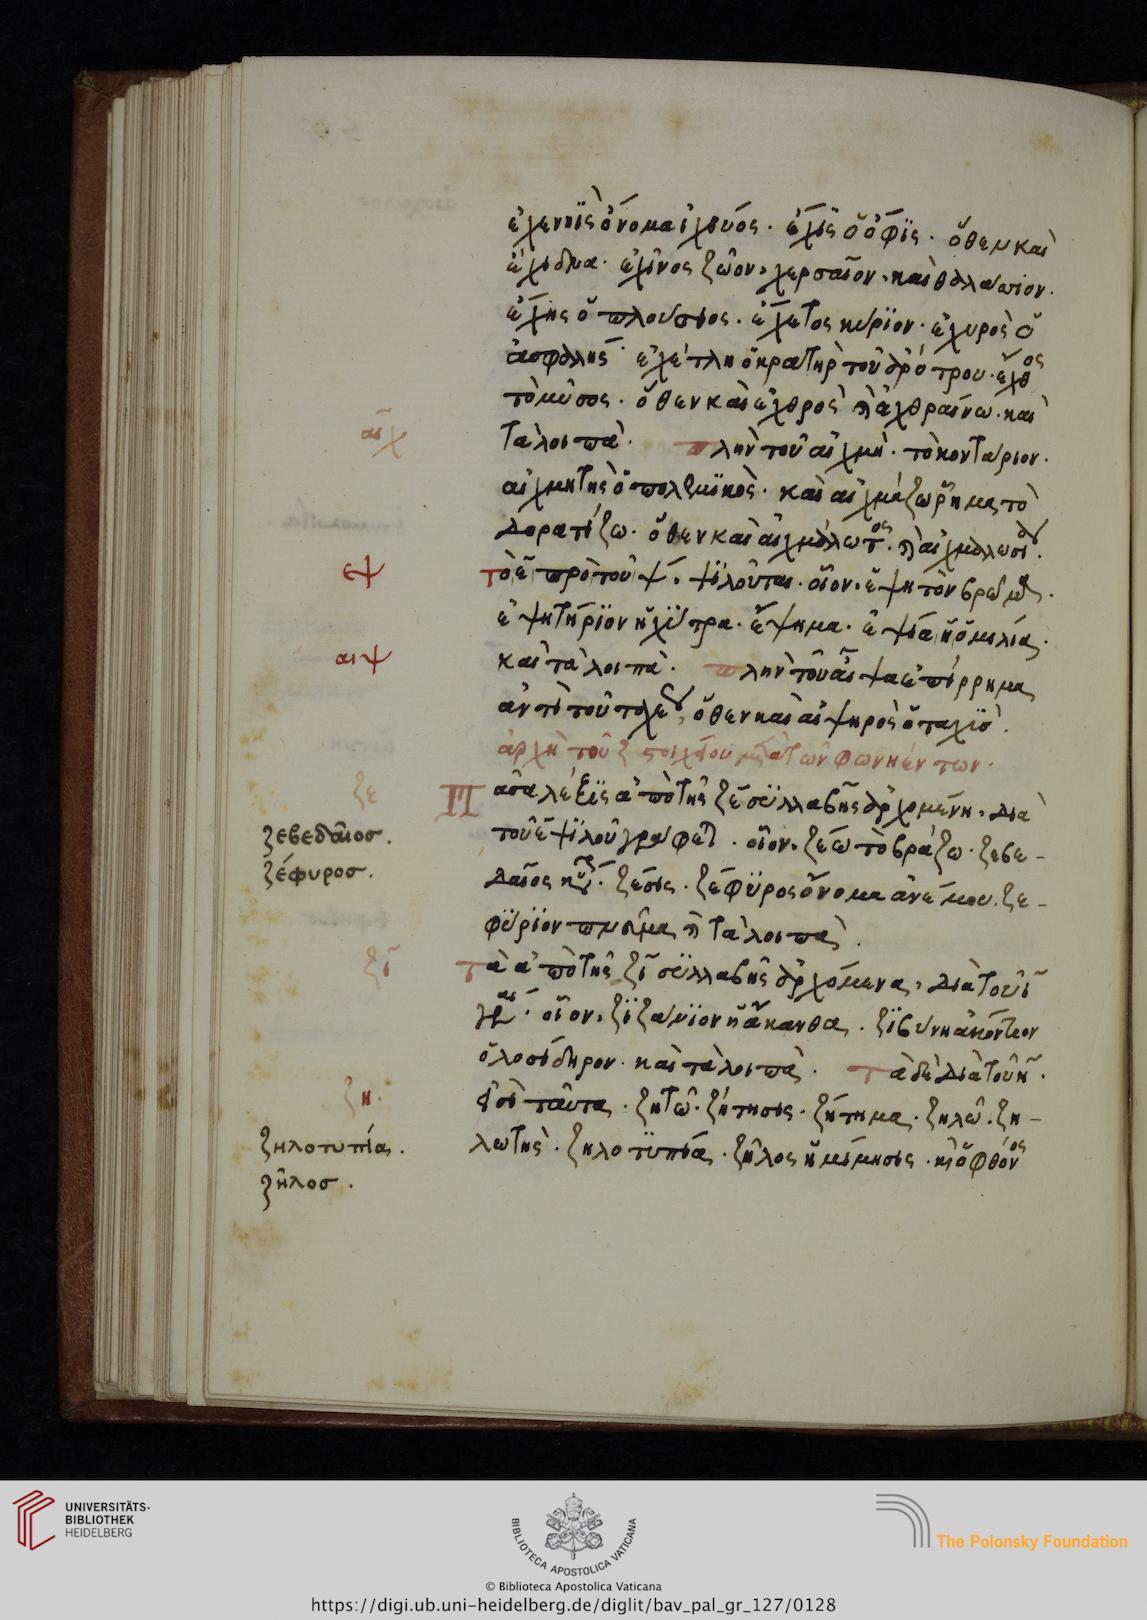 ἐχενηῒς ὄνομα ἰχθύος · ἔχϊς ὁ ὄφϊς · ὅθεν καὶ
ἔχιδνα · ἐχῖνος ζῶον, χερσαῖον, καὶ θαλάσσιον.
ὁ πλούσιος · ἔχετος κύρϊον · ἐχυρὸς ὁ
ἀσφαλής · ἐχέτλη ὁ κρατὴρ τοῦ ἀρότρου · ἔχθος
τὸ μῖσος · ὅθεν καὶ ἐχθρὸς καὶ ἐχθραίνω · καὶ
αιχ
τὰ λοιπά · πλὴν τοῦ αἰχμὴ · τὸ κοντάριον.
αἰχμητὴς ὁ πολεμϊκὸς · καὶ αἰχμάζω ῥῆμα τὸ
δορατίζω · ὅθεν καὶ αἰχμάλωτος · καὶ
εψ
τὸ ε πρὸ τοῦ ψ, ψϊλοῦται · οἷον, ἔψη τὸν
ἑψητήρϊον ἡ χύτρα · ἕψημα · ἐψία ἡ ὁμιλία.
αιψ
καὶ τὰ λοιπὰ · πλὴν τοῦ αἶψα ἐπίρρημα
ἀντὶ τοῦ ταχέως, ὅθεν καὶ αἰψηρὸς ὁ ταχὺς.
ἀρχὴ τοῦ ζ στοιχείου μετὰ τῶν φωνηέντων.
ζε
Πᾶσα λέξϊς ἀπὸ τῆς ζε συλλαβῆς ἀρχομένη, διὰ
ζεβεδαῖοσ.
τοῦ ε ψϊλοῦ γράφεται · οἷον, ζέω τὸ βράζω · ζεβε-
ζέφυροσ.
δαῖος · ζέσις · ζέφϋρος ὄνομα ἀνέμου · ζε-
φύρϊον καὶ τὰ λοιπὰ.
ζι
τὰ ἀπὸ τῆς ζι συλλαβῆς ἀρχόμενα, διὰ τοῦ ι
οἷον, ζϊζάνϊον ἡ ἄκανθα · ζϊβύνη ἀκόντιον
ὁλοσίδηρον · καὶ τὰ λοιπὰ · τὰ δὲ διὰ τοῦ η.
ζη.
εἰσὶ ταῦτα · ζητῶ · ζήτησις · ζήτημα · ζηλῶ · ζη-
ζηλοτυπία.
λωτὴς · ζηλοτϋπία · ζῆλος ἡ μίμησις · καὶ ὁ φθόνος
ζῆλοσ.
UNIVERSITÄTS-
BIBLIOTHEK
HEIDELBERG
BIBLIOTECA APOSTOLICA VATICANA
The Polonsky Foundation
© Biblioteca Apostolica Vaticana
https://digi.ub.uni-heidelberg.de/diglit/bav_pal_gr_127/0128